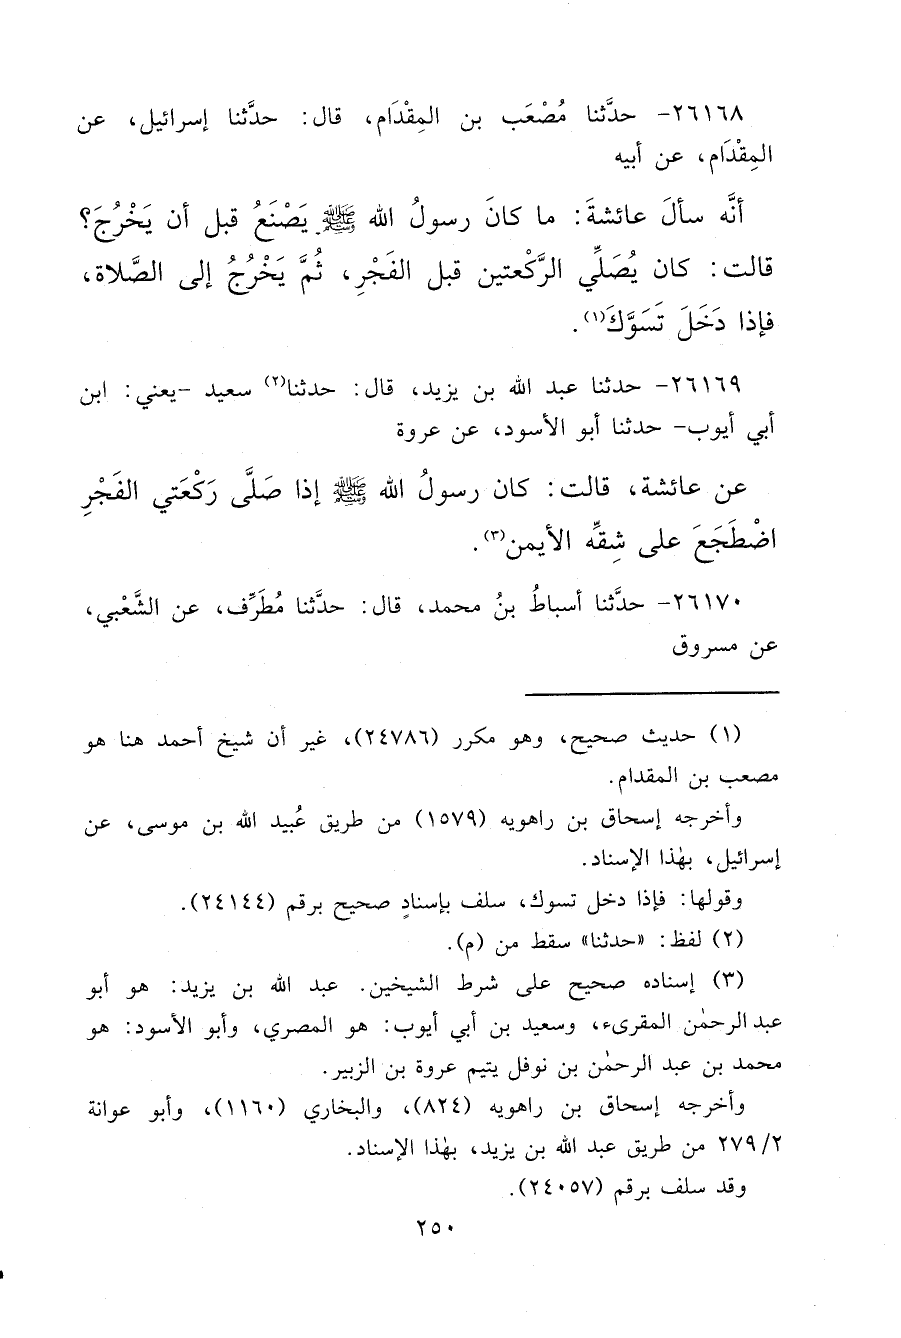 ٢٦١٦٨- حدَّثنا مُصْعَب بن المِقْدَام، قال: حدَّثنا إسرائيل، عن
المِقْدَام، عن أبيه
أنَّه سألَ عائشةَ: ما كانَ رسولُ الله ﷺ يَصْنَعُ قبل أن يَخْرُجَ؟
قالت: كان يُصَلِّي الرَّكْعتين قبل الفَجْرِ، ثُمَّ يَخْرُجُ إلى الصَّلاة،
فإذا دَخَلَ تَسَوَّكَ(١).
٢٦١٦٩- حدثنا عبد الله بن يزيد، قال: حدثنا(٢) سعيد -يعني: ابن
أبي أيوب- حدثنا أبو الأسود، عن عروة
عن عائشة، قالت: كان رسولُ الله ﷺ إذا صَلَّى رَكْعَتي الفَجْرِ
اضْطَجَعَ على شِقِّه الأيمن(٣).
٢٦١٧٠- حدَّثنا أسباطُ بنُ محمد، قال: حدَّثنا مُطَرِّف، عن الشَّعْبي،
عن مسروق
(١) حديث صحيح، وهو مكرر (٢٤٧٨٦)، غير أن شيخ أحمد هنا هو
مصعب بن المقدام.
وأخرجه إسحاق بن راهويه (١٥٧٩) من طريق عُبيد الله بن موسى، عن
إسرائيل، بهٰذا الإسناد.
وقولها: فإذا دخل تسوك، سلف بإسنادٍ صحيح برقم (٢٤١٤٤).
(٢) لفظ: «حدثنا» سقط من (م).
(٣) إسناده صحيح على شرط الشيخين. عبد الله بن يزيد: هو أبو
عبد الرحمٰن المقرىء، وسعيد بن أبي أيوب: هو المصري، وأبو الأسود: هو
محمد بن عبد الرحمٰن بن نوفل يتيم عروة بن الزبير.
وأخرجه إسحاق بن راهويه (٨٢٤)، والبخاري (١١٦٠)، وأبو عوانة
٢/ ٢٧٩ من طريق عبد الله بن يزيد، بهٰذا الإسناد.
وقد سلف برقم (٢٤٠٥٧).
٢٥٠